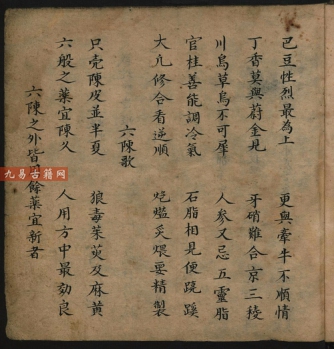 巴豆性烈最為上　更與牽牛不順情
丁香莫與蔚金見　牙硝難合京三稜
川烏草烏不可犀　人参又忌五靈脂
官桂善能調冷氣　石脂相見便跷蹊
大凢修合看逆順　炮爁炙煨要精製
六陳歌
只壳陳皮並半夏　狼毒茱萸及麻黄
六般之藥宜陳久　人用方中最効良
六陳之外皆 餘藥宜新者
九易古籍网